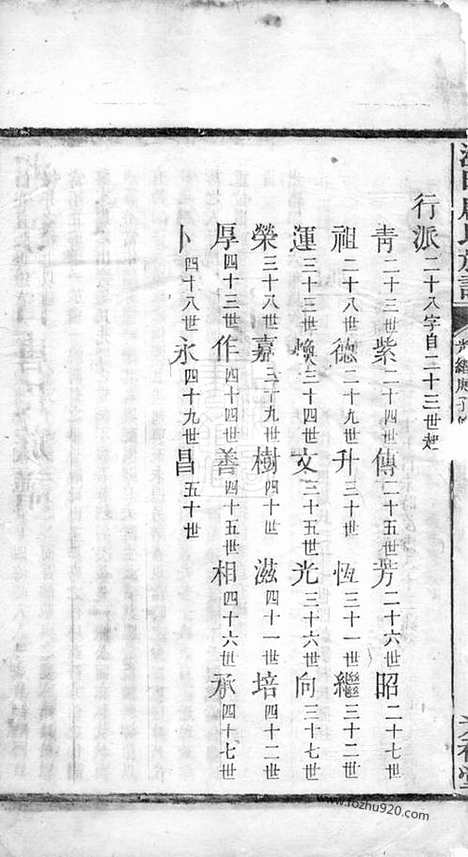 行派二十八字自二十三世起
青二十三世紫二十四世傳二十五世芳二十六世昭二十七世
祖二十八世德二十九世升三十世恆三十一世繼三十二世
運三十三世煥三十四世文三十五世光三十六世向三十七世
榮三十八世嘉三十九世樹四十世滋四十一世培四十二世
厚四十三世作四十四世善四十五世相四十六世承四十七世
卜四十八世永四十九世昌五十世
www.fozhu920.com